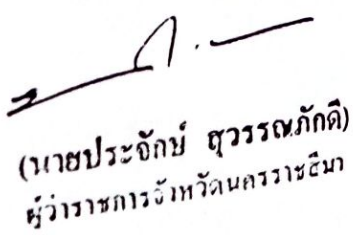 (นายประจักษ์ สุวรรณภักดี)
ผู้ว่าราชการจังหวัดนครราชสีมา